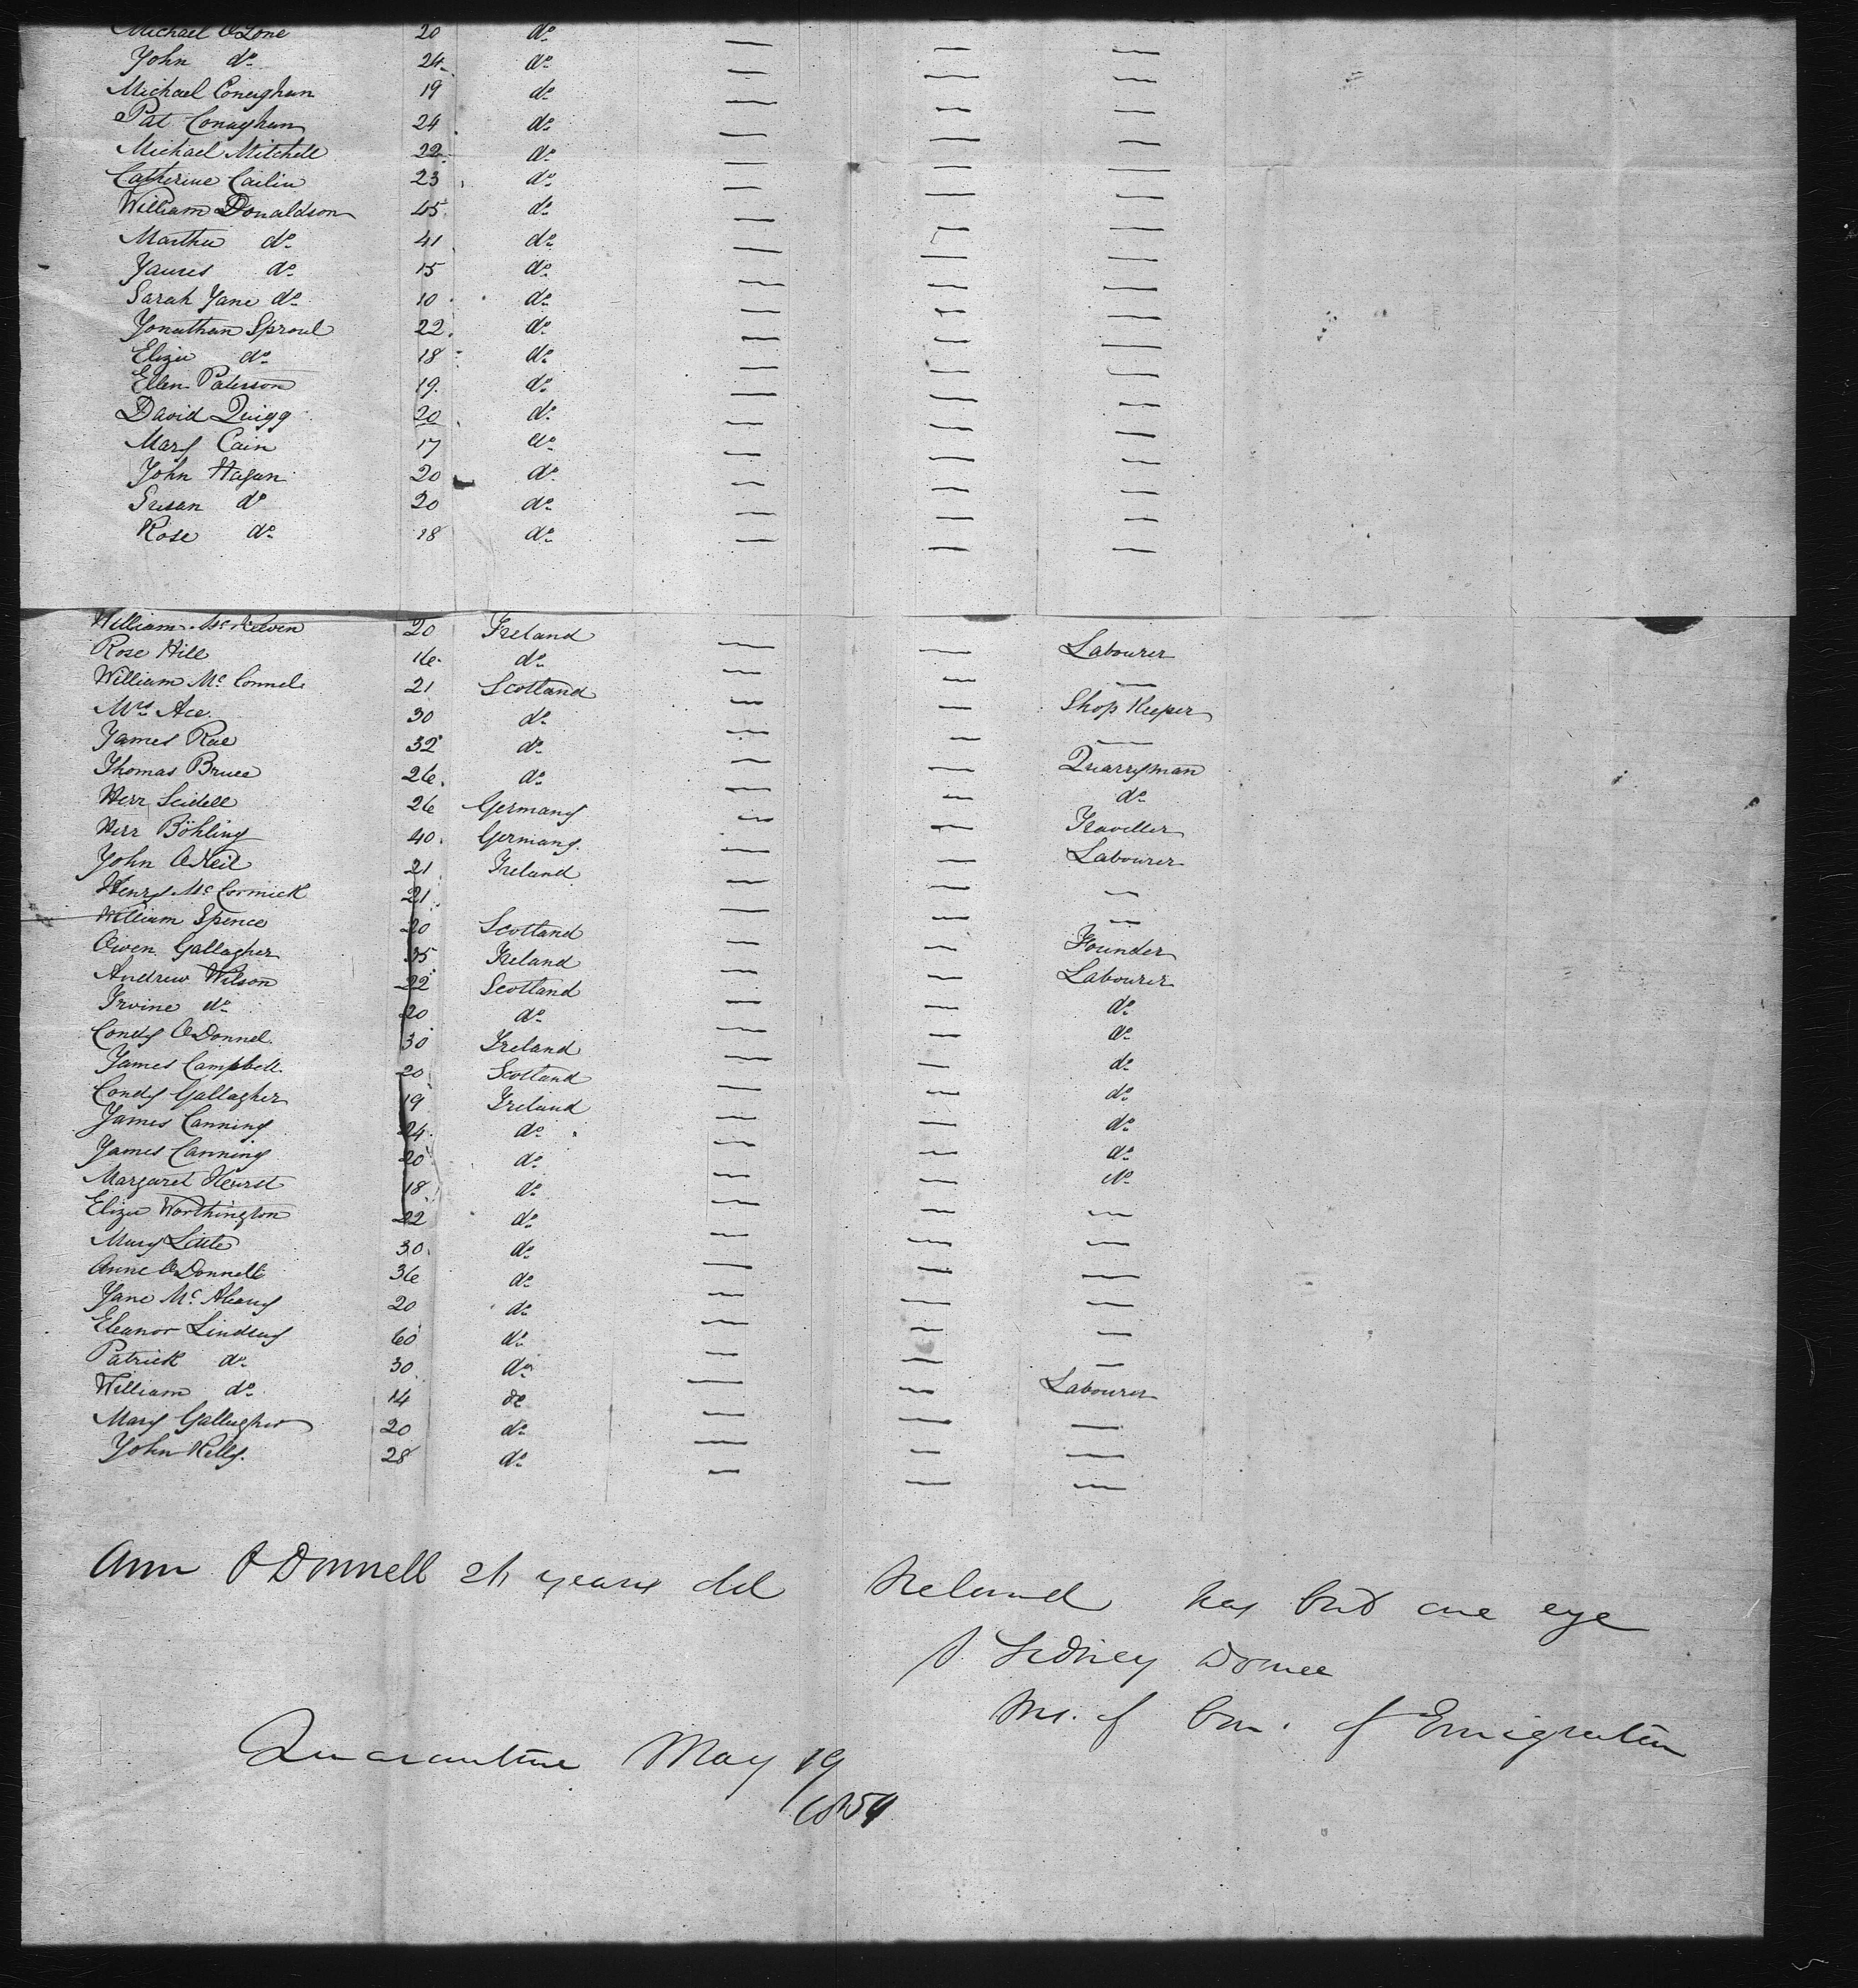 Michael O'Lone 20 do
John do 24 do
Michael Coneighan 19 do
Pat Conaghan 24 do
Michael Mitchell 22 do
Catherine Cailin 23 do
William Donaldson 45 do
Martha do 41 do
James do 15 do
Sarah Jane do 10 do
Jonathan Sproul 22 do
Eliza do 18 do
Ellen Paterson 19 do
David Quigg 20 do
Mary Cain 17 do
John Hagan 20 do
Susan do 20 do
Rose do 18 do
William Mc 20 Ireland Labourer
Rose Hill 16 do
William Mc Connel 21 Scotland Shop Keeper
Mrs Ace 30 do
James Rae 32 do Quarryman
Thomas Bruce 26 do do
Herr Seidell 26 Germany Traveller
Herr Böhling 40 Germany Labourer
John O'Neil 21 Ireland
Henry Mc Cormick 21
William Spence 20 Scotland Founder
Owen Gallagher 35 Ireland Labourer
Andrew Wilson 22 Scotland do
Irvine do 20 do do
Condy O'Donnel 30 Ireland do
James Campbell 20 Scotland do
Condy Gallagher 19 Ireland do
James Canning 24 do do
James Canning 20 do do
Margaret Heurst 18 do
Eliza Worthington 22 do
Mary Little 30 do
Anne O'Donnell 36 do
Jane Mc 20 do
Eleanor Lindsay 60 do
Patrick do 30 do Labourer
William do 14 do
Mary Gallagher 20 do
John Kelly 28 do
Ann O Donnell years old Ireland has but one eye
Sidney
of Com. of Emigration
Quarantine May 19
1854